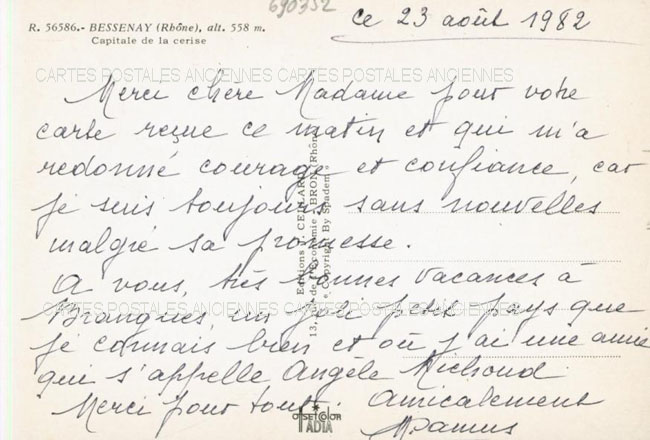 690352
R. 56586.- BESSENAY (Rhône), alt. 558 m.
Capitale de la cerise
ce 23 août 1982
CARTES POSTALES ANCIENNES CARTES POSTALES ANCIENNES
Merci chère Madame pour votre
carte reçue ce matin et qui m'a
redonné courage et confiance, car
je suis toujours sans nouvelles
malgré sa promesse.
A vous, très bonnes vacances à
Brangues, un joli petit pays que
je connais bien et où j'ai une amie
qui s'appelle Angèle Michoud.
Merci pour tout. Amicalement
CARTES POSTALES ANCIENNES CARTES POSTALES ANCIENNES
Editions CELLARD
13, de l'Economie BRON (Rhône)
Copyright By Spadem
OFFSETCOLOR
IADIA